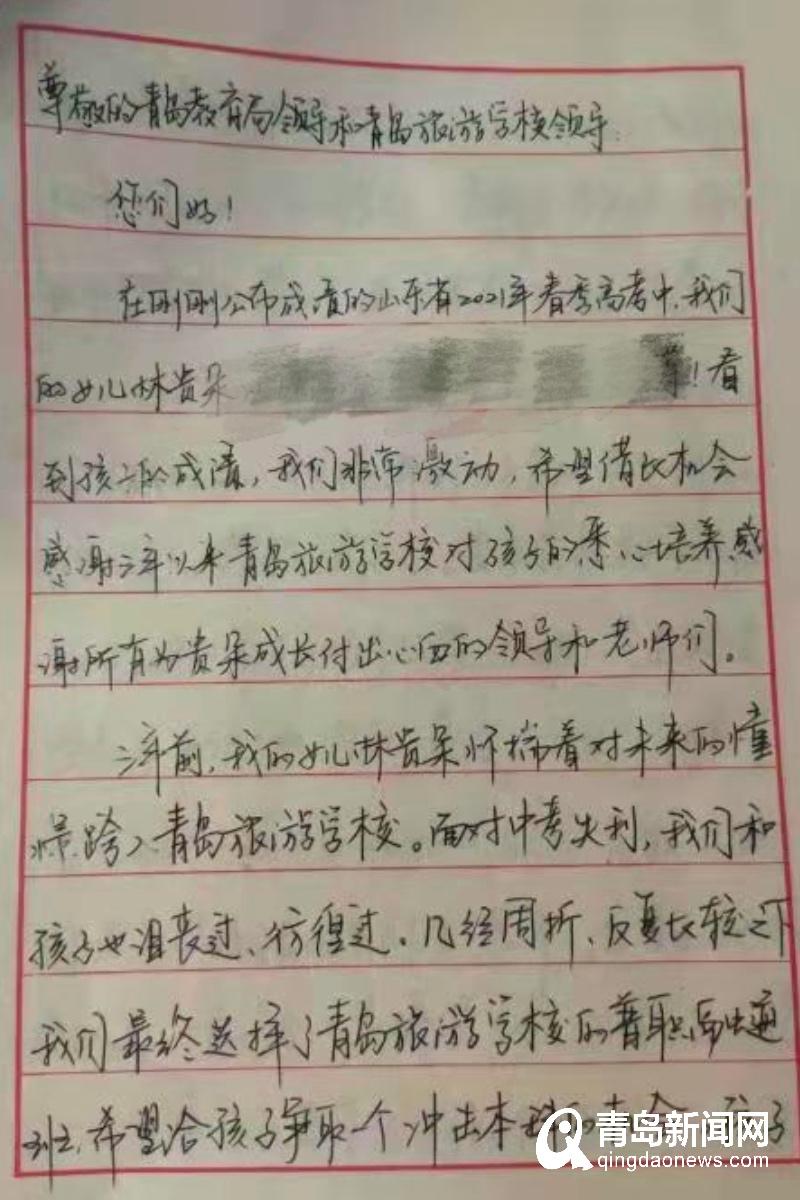 尊敬的青岛教育局领导和青岛旅游学校领导:
您们好!
在刚刚公布成绩的山东省2021年春季高考中,我们
的女儿林贵朵 !看
到孩子的成绩,我们非常激动,希望借此机会
感谢三年以来青岛旅游学校对孩子的悉心培养感
谢所有为贵朵成长付出心血的领导和老师们。
三年前,我的女儿林贵朵怀揣着对未来的憧
憬跨入青岛旅游学校。面对中考失利,我们和
孩子也沮丧过、彷徨过。几经周折、反复比较之下
我们最终选择了青岛旅游学校的普职融通
班,希望给孩子争取一个冲击本科的机会 孩子
青岛新闻网
qingdaonews.com